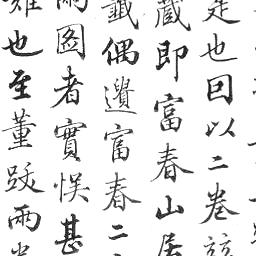 是也回以二卷該
藏即富春山居
籤偶遺富春二
爾圖者實悞甚
雖也至董跋兩